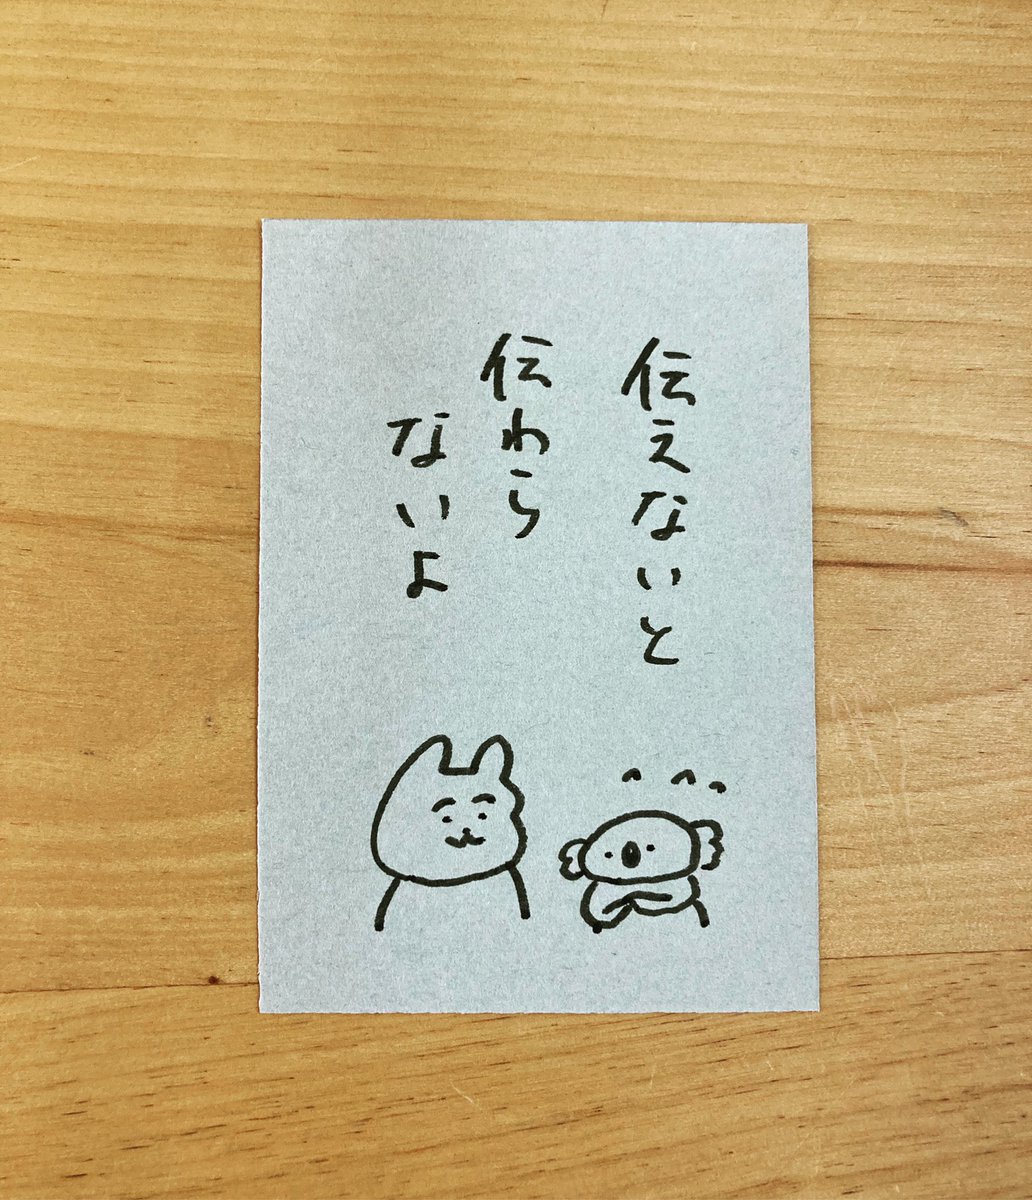 伝えないと
伝わら
ないよ